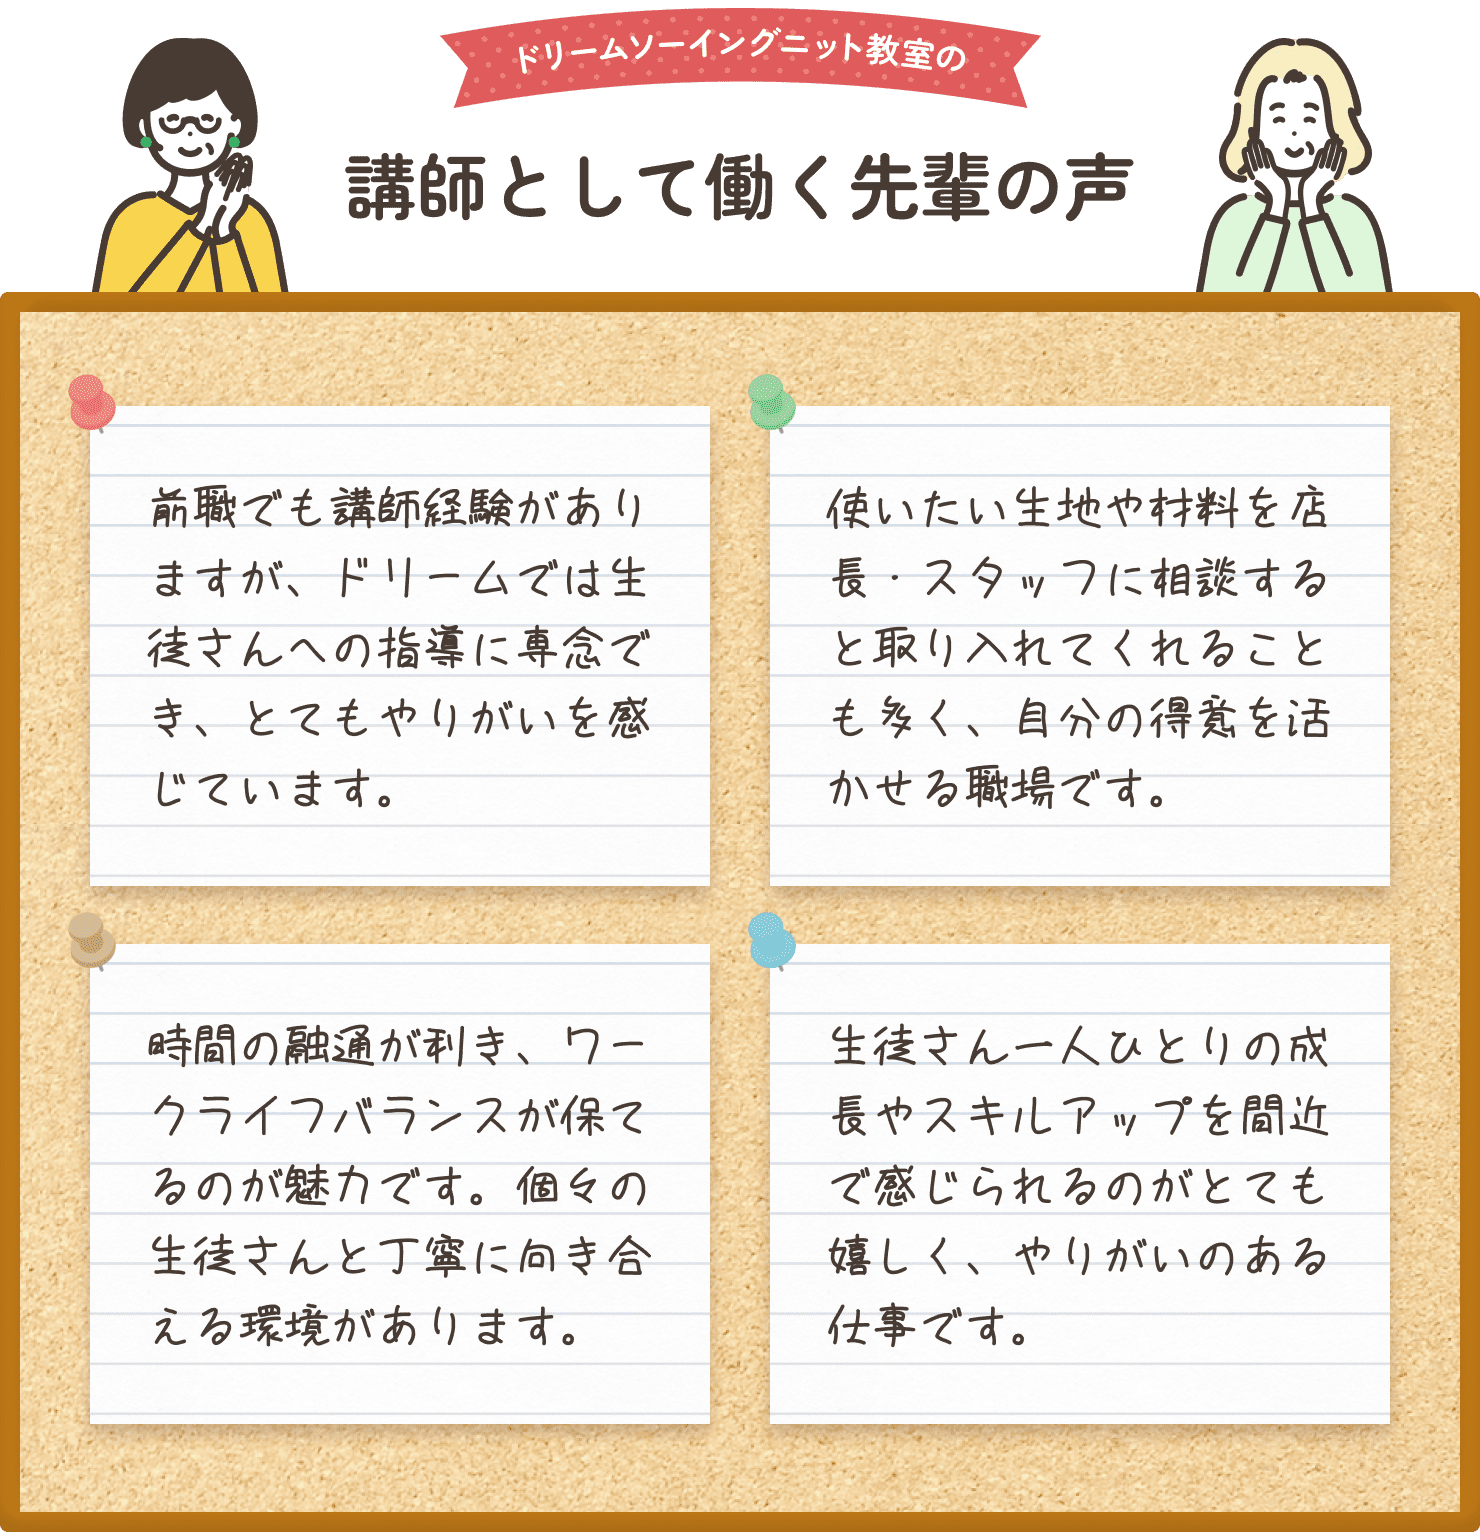 ドリームソーイングニット教室の
講師として働く先輩の声
前職でも講師経験があり
ますが、ドリームでは生
徒さんへの指導に専念で
き、とてもやりがいを感
じています。
使いたい生地や材料を店
長・スタッフに相談する
と取り入れてくれること
も多く、自分の得意を活
かせる職場です。
時間の融通が利き、ワー
クライフバランスが保て
るのが魅力です。個々の
生徒さんと丁寧に向き合
える環境があります。
生徒さん一人ひとりの成
長やスキルアップを間近
で感じられるのがとても
嬉しく、やりがいのある
仕事です。